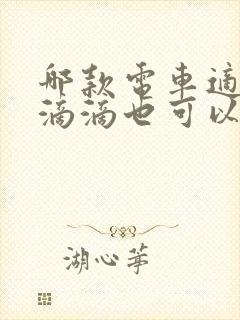 哪款電車適
滴滴也可以
湖心筆